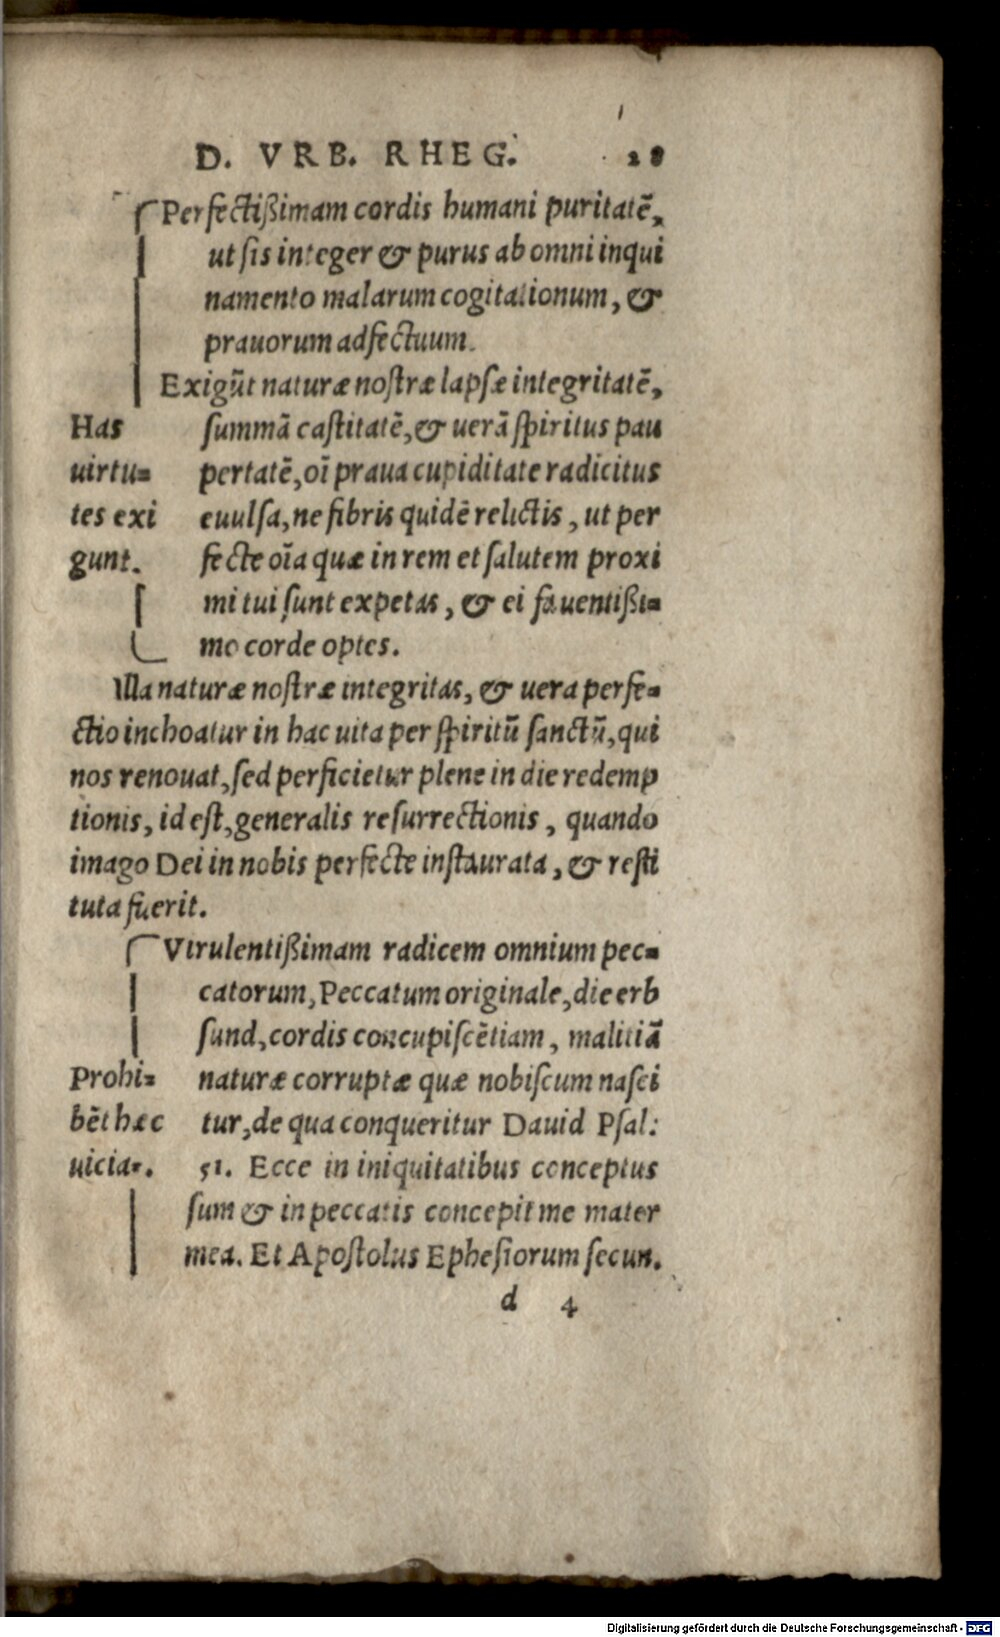 D. VRB. RHEG. 28
Perfectißimam cordis humani puritatē,
ut ſis integer & purus ab omni inqui
namento malarum cogitationum, &
prauorum adfectuum.
Exigūt naturæ noſtræ lapſæ integritatē,
Has ſummā caſtitatē, & uerā ſpiritus pau
uirtu= pertatē, oī praua cupiditate radicitus
tes exi euulſa, ne fibris quidē relictis, ut per
gunt. fecte oīa quæ in rem et ſalutem proxi
mi tui ſunt expetas, & ei fauentißi=
mo corde optes.
Illa naturæ noſtræ integritas, & uera perfe=
ctio inchoatur in hac uita per ſpiritū ſanctū, qui
nos renouat, ſed perficietur plene in die redemp
tionis, id eſt, generalis reſurrectionis, quando
imago Dei in nobis perfecte inſtaurata, & reſti
tuta fuerit.
Virulentißimam radicem omnium pec=
catorum, Peccatum originale, die erb
ſund, cordis concupiſcētiam, malitiā
Prohi= naturæ corruptæ quæ nobiſcum naſci
bēt hæc tur, de qua conqueritur Dauid Pſal:
uicia. 51. Ecce in iniquitatibus conceptus
ſum & in peccatis concepit me mater
mea. Et Apoſtolus Epheſiorum ſecun.
d 4
Digitalisierung gefördert durch die Deutsche Forschungsgemeinschaft - DFG